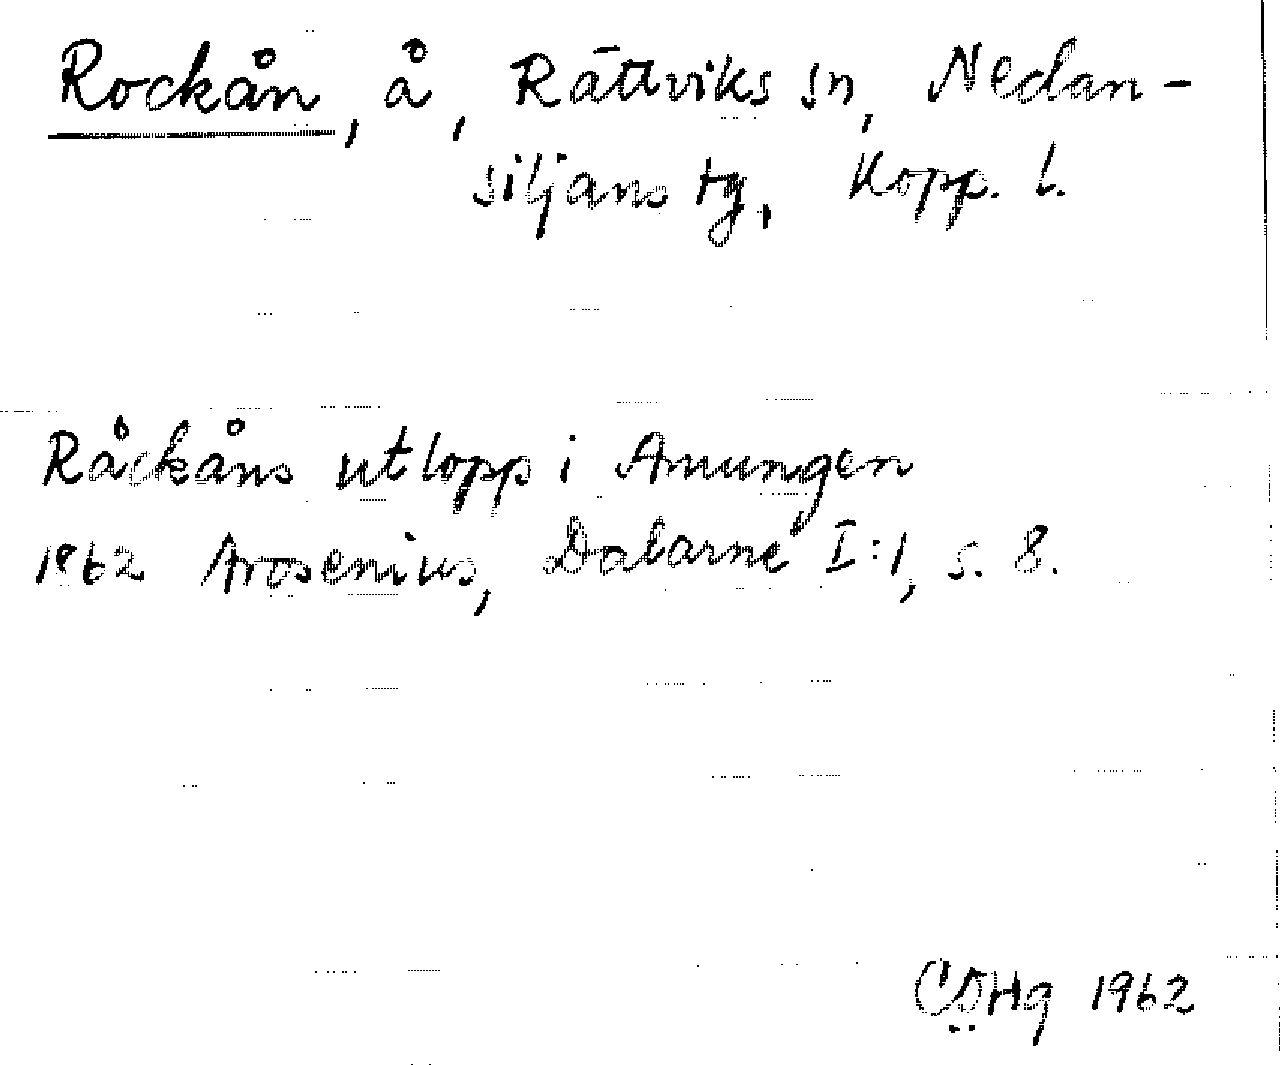 Rockån, å, Rättviks sn, Nedan-
siljans tg, Kopp. l.
Råckåns utlopp i Amungen
1862 Arosenius, Dalarne I:1, s. 8.
1962